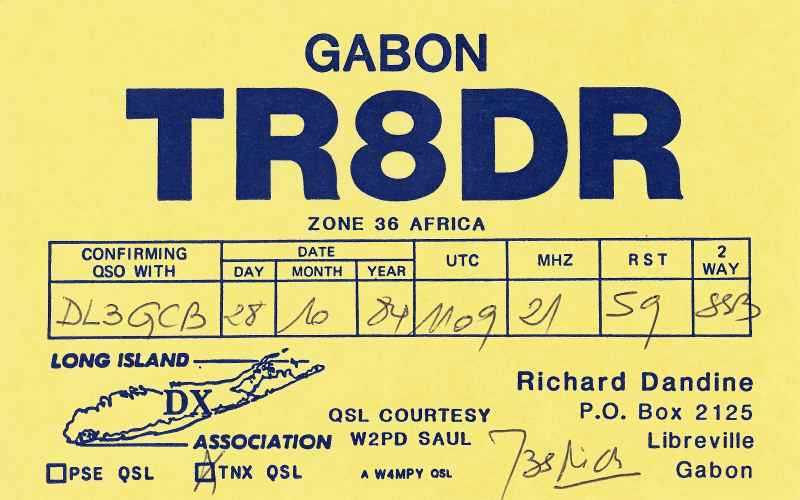 GABON
TR8DR
ZONE 36 AFRICA
CONFIRMING QSO WITH DATE UTC MHZ RST 2 WAY
DAY MONTH YEAR
DL3GCB 28 10 84 1109 21 59 SSB
LONG ISLAND
DX
ASSOCIATION
QSL COURTESY
W2PD SAUL
A W4MPY QSL
PSE QSL TNX QSL
Richard Dandine
P.O. Box 2125
Libreville
Gabon
73s Rich